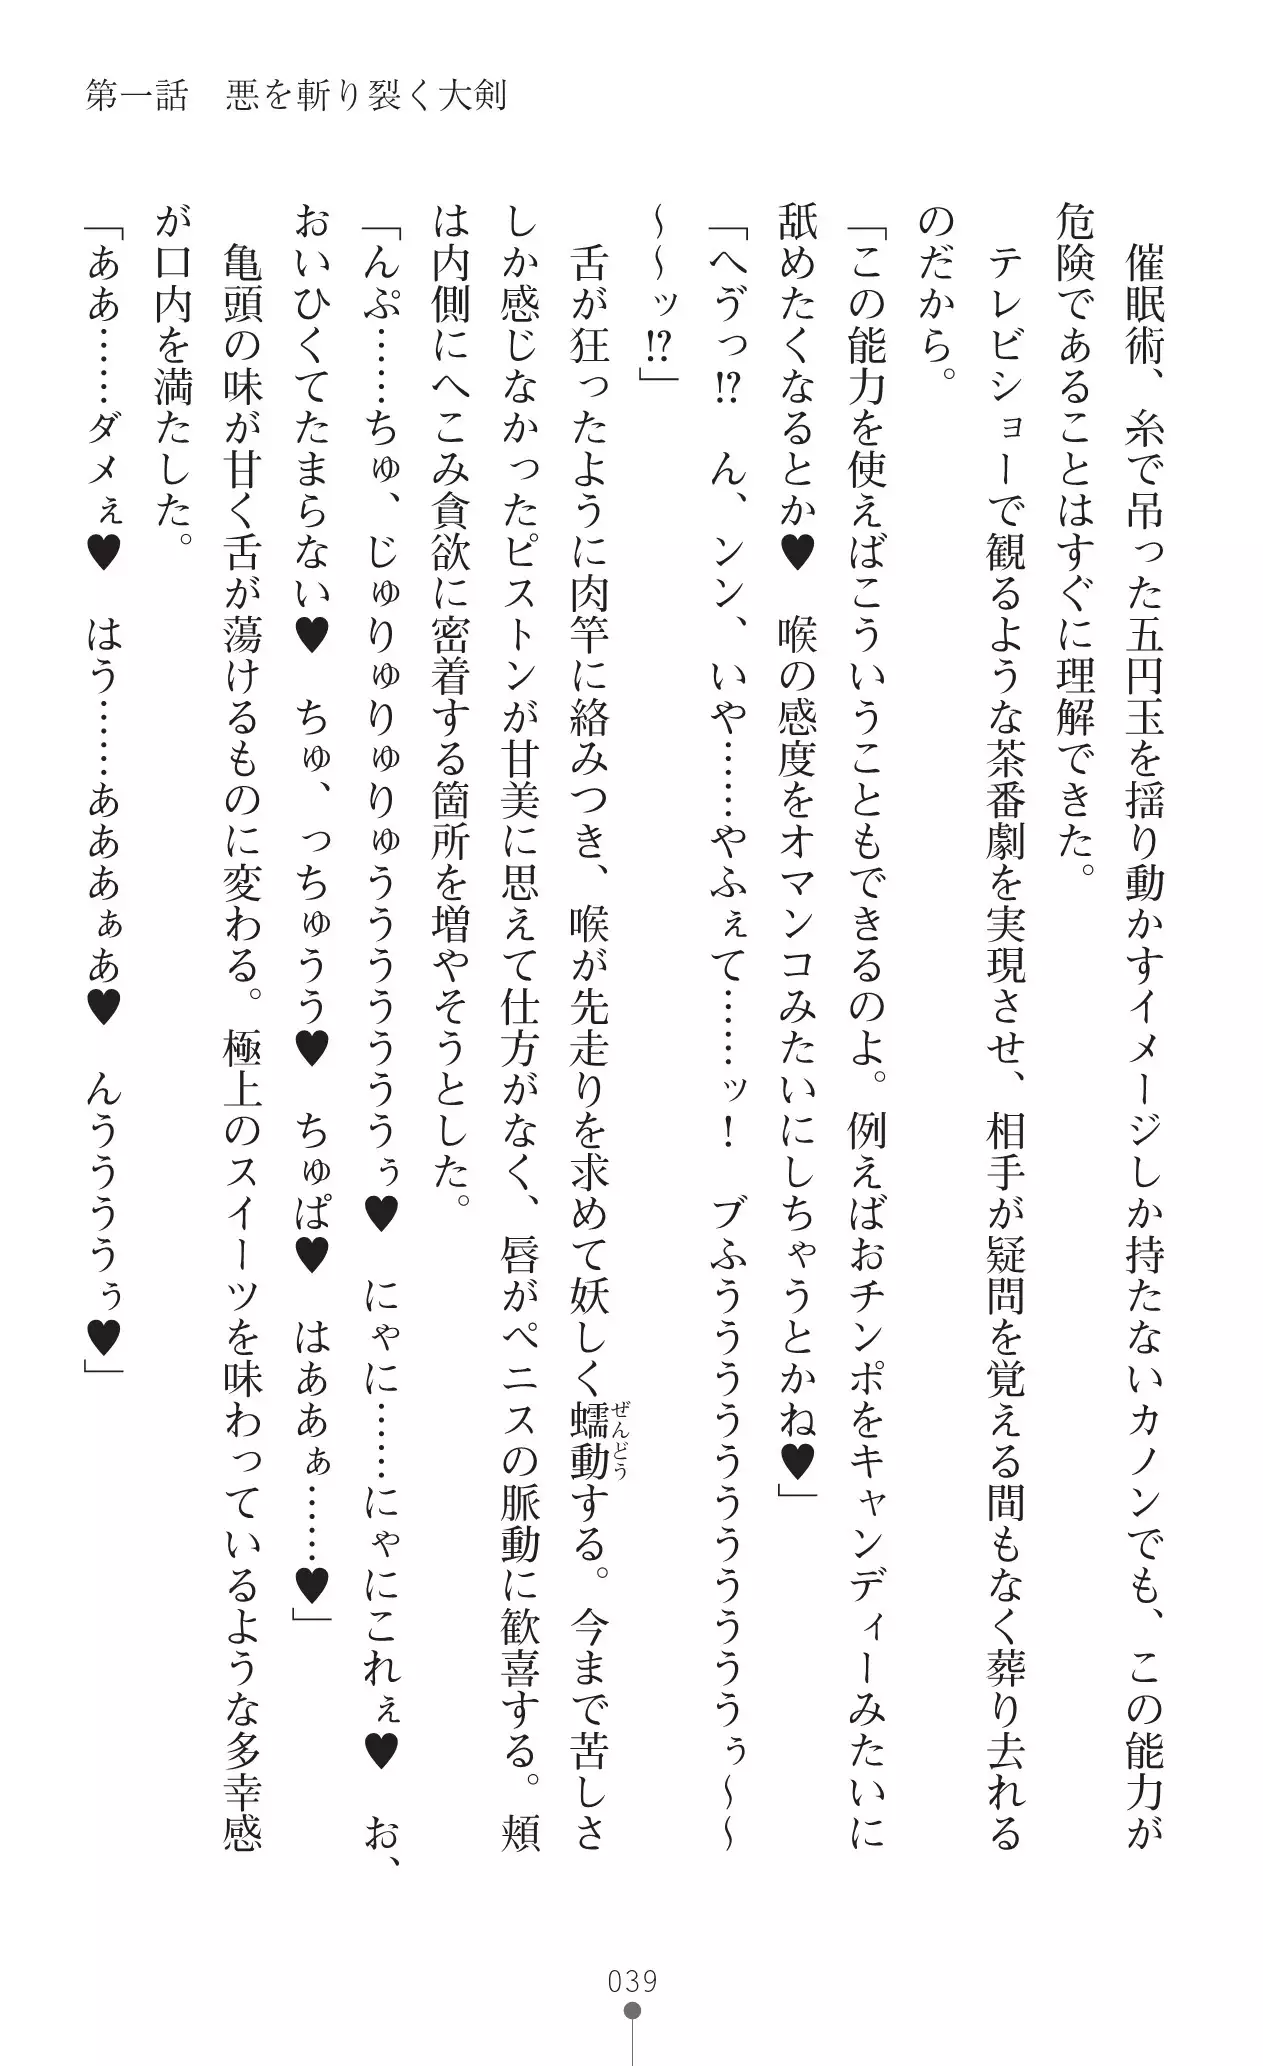 第一話　悪を斬り裂く大剣
　催眠術、糸で吊った五円玉を揺り動かすイメージしか持たないカノンでも、この能力が
危険であることはすぐに理解できた。
　テレビショーで観るような茶番劇を実現させ、相手が疑問を覚える間もなく葬り去れる
のだから。
「この能力を使えばこういうこともできるのよ。例えばおチンポをキャンディーみたいに
舐めたくなるとか♥　喉の感度をオマンコみたいにしちゃうとかね♥」
「へゔっ!?　ん、ンン、いや……やふぇて……ッ！　ブふううううううううううぅ～～
～～ッ!?」
　舌が狂ったように肉竿に絡みつき、喉が先走りを求めて妖しく蠕動ぜんどうする。今まで苦しさ
しか感じなかったピストンが甘美に思えて仕方がなく、唇がペニスの脈動に歓喜する。頬
は内側にへこみ貪欲に密着する箇所を増やそうとした。
「んぷ……ちゅ、じゅりゅりゅりゅうううううぅ♥　にゃに……にゃにこれぇ♥　お、
おいひくてたまらない♥　ちゅ、っちゅうう♥　ちゅぱ♥　はあぁ……♥」
　亀頭の味が甘く舌が蕩けるものに変わる。極上のスイーツを味わっているような多幸感
が口内を満たした。
「ああ……ダメぇ♥　はう……あああぁあ♥　んううううぅ♥」
039